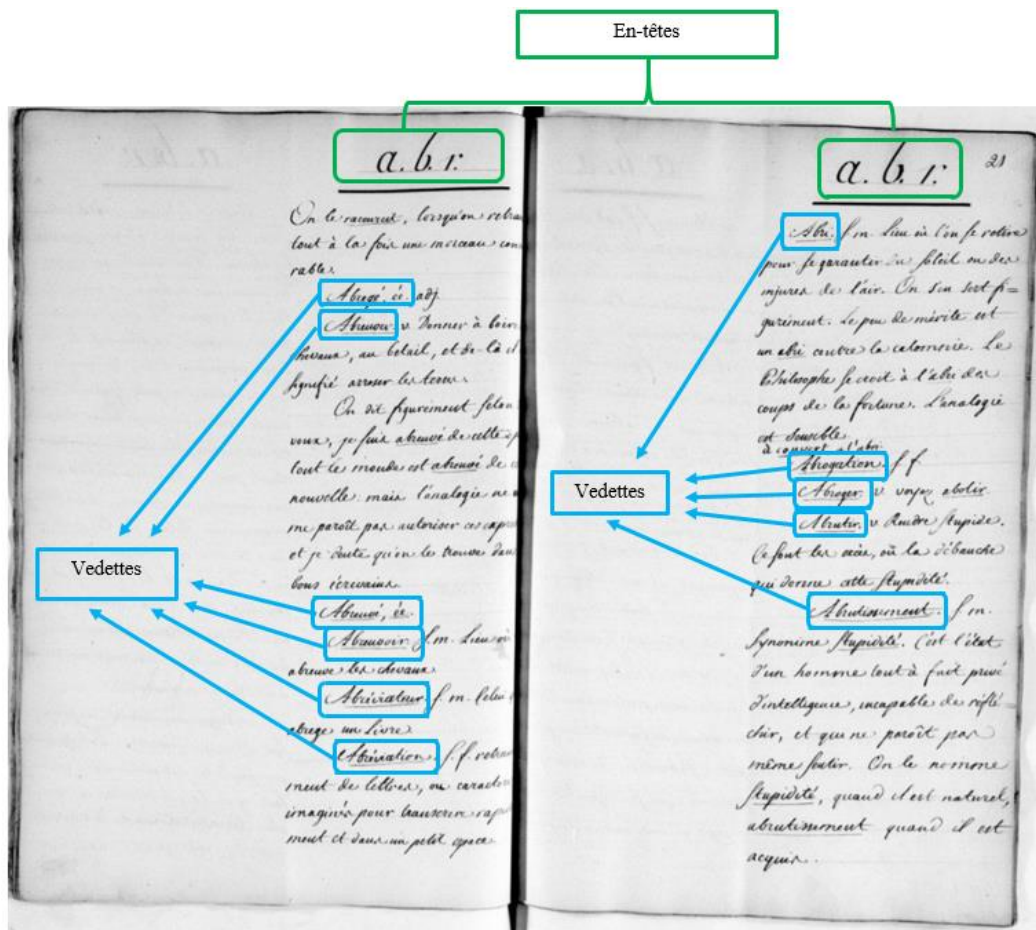 En-têtes
a. b. r.
On le racourcit, lorsqu'on retran
tout à la fois une morceau con
rable.
Abregé, ée. adj
Abreuver. v Donner à boire
chevaux, au betail, et de là il
signifié arroser les terres.
On dit figurément selon
voux, je suis abreuvé de cette
tout le monde est abreuvé de c
nouvelle. mais l'analogie ne
me paroît pas autoriser ces
et je doute qu'on le trouve dans
bons écrivains.
Vedettes
Abreuvé, ée.
Abreuvoir. s. m. Lieu où
abreuve les chevaux
Abréviateur. s. m. Celui
abrege un Livre
Abréviation. s. f. retran
ment de lettres, ou caract
imaginés pour transcrire rap
ment et dans un petit espace
a. b. r. 21
Abri. s. m. Lieu où l'on se retire
pour se garantir du soleil ou des
injures de l'air. On s'en sert fi=
gurément. Le peu de mérite est
un abri contre la calomnie. Le
Philosophe se croit à l'abri des
coups de la fortune. L'analogie
est sensible
à couvert à l'abri
Abrogation. s. f.
Vedettes
Abroger. v voyez abolir.
Abrutir. v Rendre stupide.
Ce sont les où la débauche
qui donne cette stupidité.
Abrutissement. s. m.
Synonime Stupidité. C'est l'état
d'un homme tout à fait privé
d'intelligence, incapable de réflé
chir, et que ne paroît pas
même sentir. On le nomme
stupidité, quand il est naturel,
abrutissement quand il est
acquis.